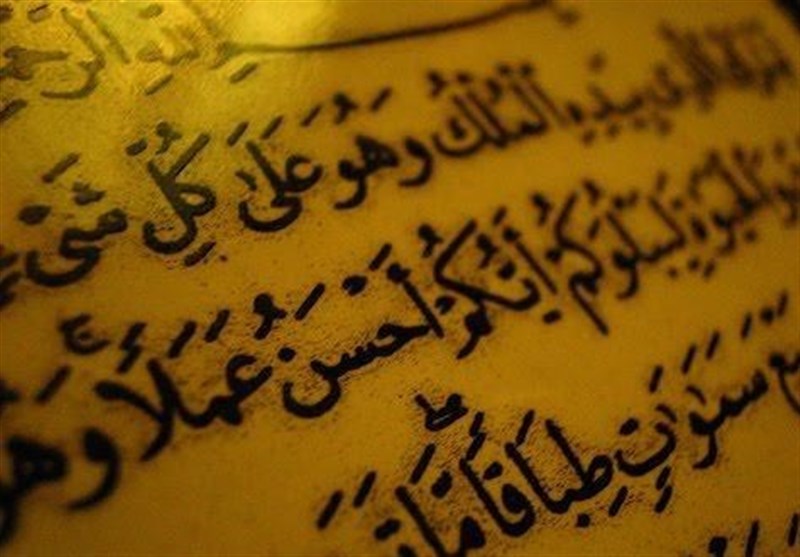 اللهِ
الَّذِي بِيَدِهِ الْمُلْكُ وَهُوَ عَلَىٰ كُلِّ شَىْءٍ
الْحَيٰوةَ لِيَبْلُوَكُمْ أَيُّكُمْ أَحْسَنُ عَمَلاً وَهُوَ
سَمٰوَاتٍ طِبَاقاً مَّا